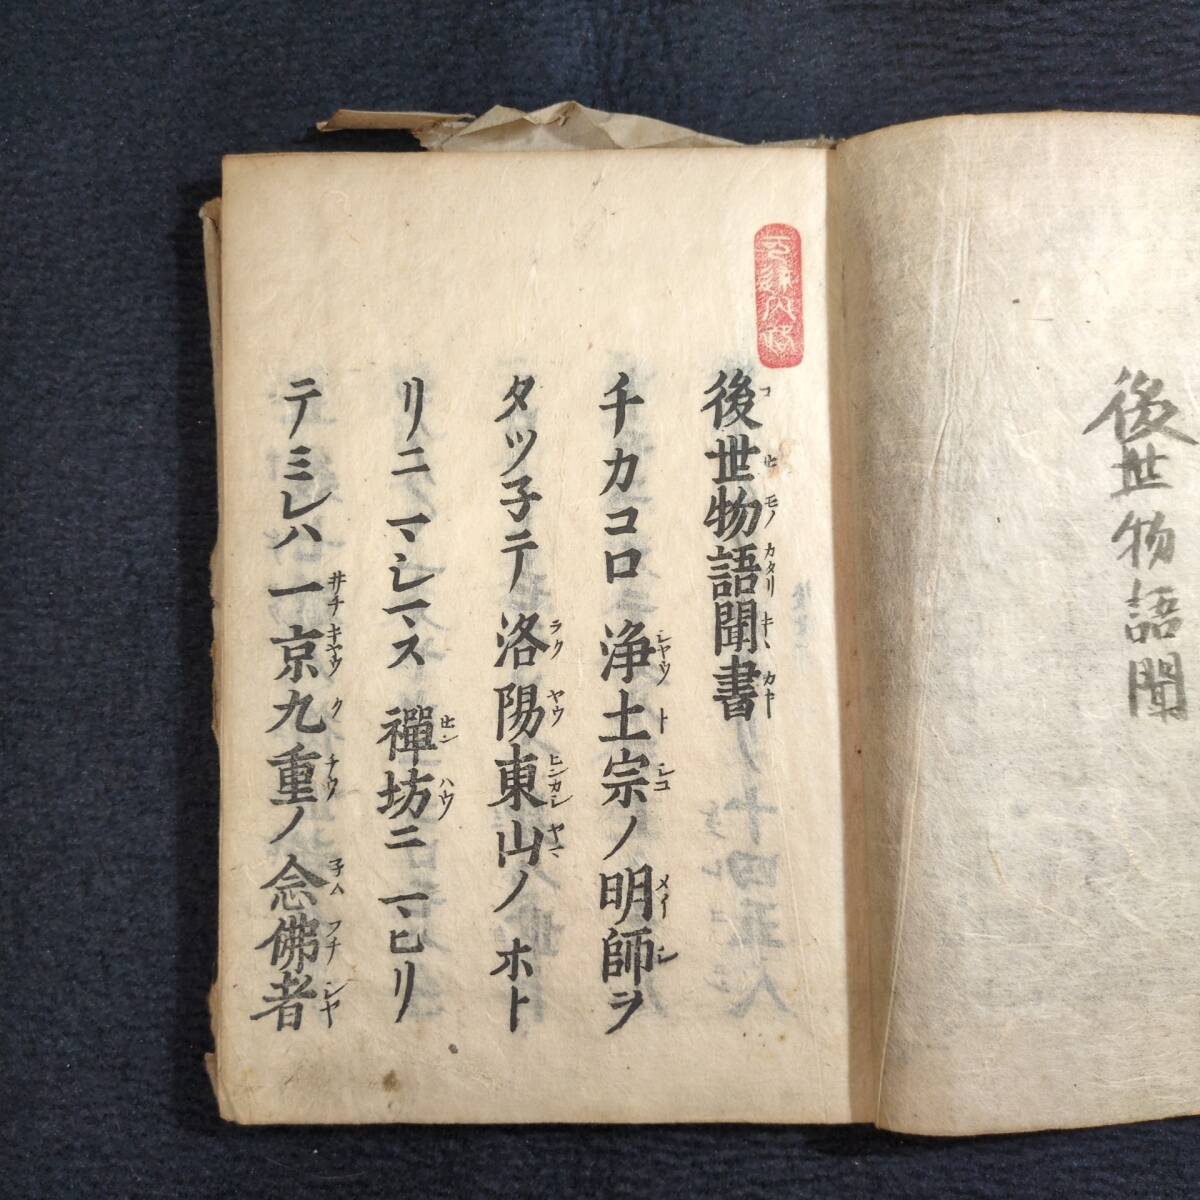 後世物語聞
後世物語聞書
チカコロ浄土宗ノ明師ヲ
タツ子テ洛陽東山ノホト
リニマシマス禪坊ニマヒリ
テミレハ一京九重ノ念佛者